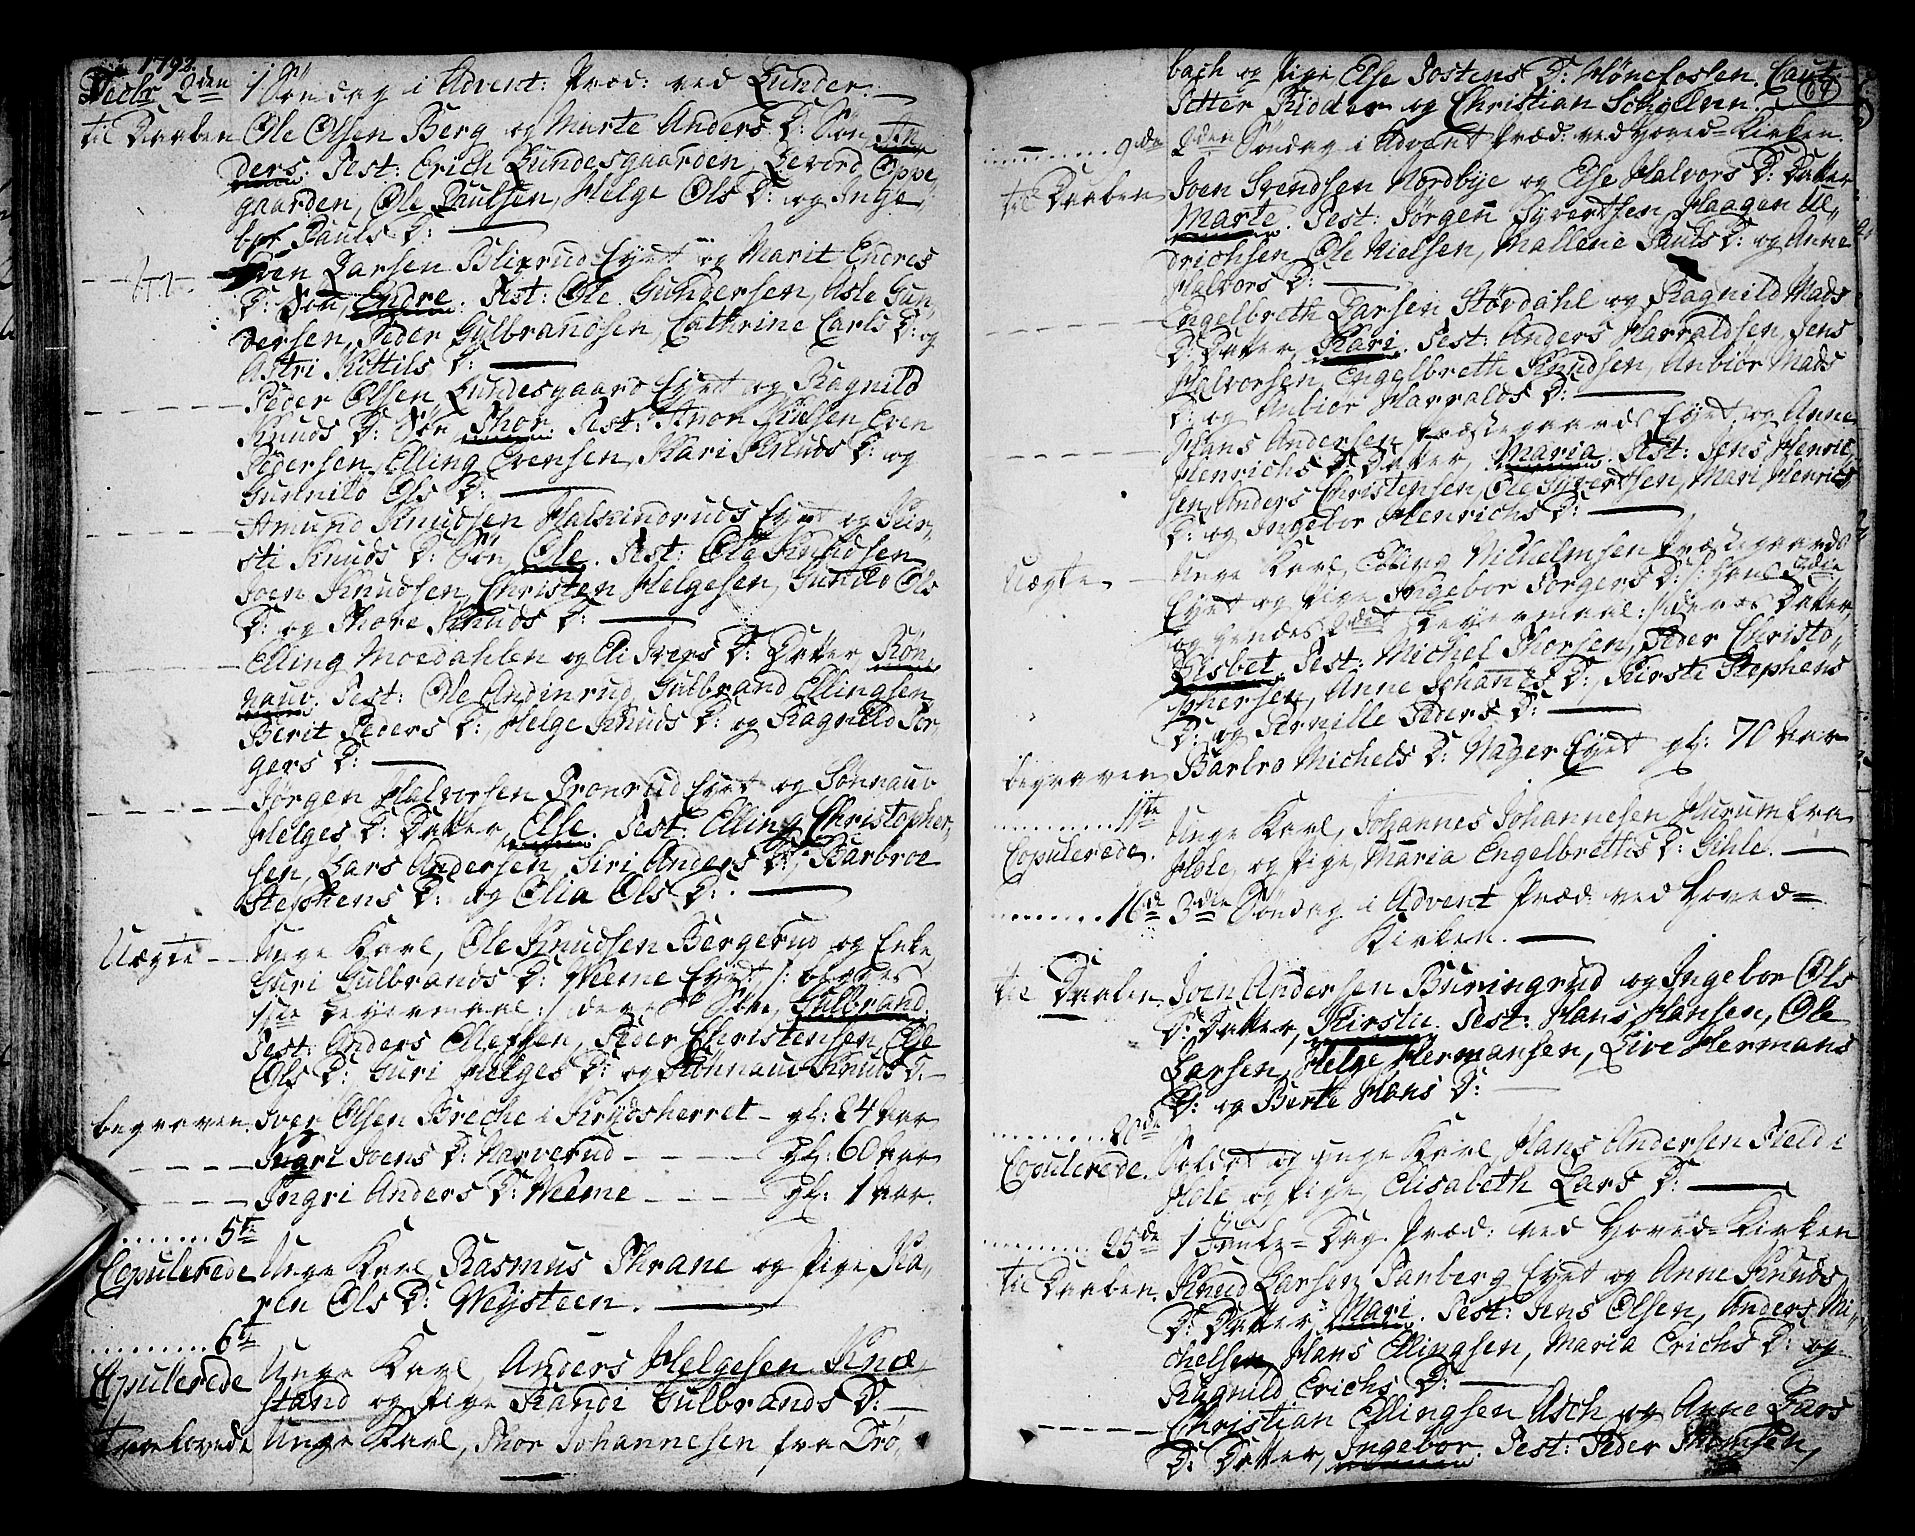 1792.
Decbr 2den 1 Søndag i Advent: Præd: ved Lunder.
til Daaben Ole Olsen Berg og Marte Anders D: Søn, An
ders. Test: Erich Lundesgaarden, Levord Oppe
gaarden, Ole Paulsen, Helge Ols D: og Inge
bor Pauls D:
Even Larsen Blixrud Eyet og Marit Endres
D: Søn, Endre. Test: Ole Gundersen, Asle Gun
dersen, Peder Gulbrandsen, Cathrine Carls D: og
Astri Kittils D:
Peder Olsen Lundesgaard Eyet og Ragnild
Knuds D: Søn Thor. Test: Knudsen, Even
Pedersen, Elling Evensen, Kari Knuds D: og
Gunnild Ols D:
Amund Knudsen Halvindruds Eyet og Kir
sti Knuds D: Søn Ole. Test: Ole Knudsen
Joen Knudsen, Christen Helgesen, Gunild Ols
D: og Thore Knuds D:
Elling Moedahlen og Eli Ivers D: Datter, Røn
naug. Test: Ole Andinrud, Gulbrand Ellingsen,
Berit Peders D: Helge Knuds D: og Ragnild Jør
gers D:
Jørgen Halvorsen Tronrud Eyet og Sønnauv
Helges D: Datter, Else. Test: Elling Christopher
sen, Lars Andersen, Siri Anders D:, Barbroe
Stephens D: og Olia Ols D:
Uægte Unge Karl, Ole Knudsen Bergerud og Enke
Guri Gulbrands D: Veeme Eyet /: begges
1ste Leyermaal :/ deres Søn, Gulbrand.
Test: Anders Ellefsen, Peder Christensen, Else
Ols D: Guri Helges D: og Rønnaug Knuds D:
begraven. Iver Olsen Breche i Krydsherret gl: 24 Aar
Ingri Joens D: Narverud gl: 60 Aar
Ingri Anders D: Veeme gl: 1 Aar.
5te
Copulerede Unge Karl Rasmus Thrane og Pige, Ka
ren Ols D: Weysteen.
6te
Copulerede Unge Karl, Anders Helgesen Knæ
stand og Pige Randi Gulbrands D:
Trolovede Unge Karl, Thor Johannesen fra Drø
bach og Pige Else Jostens D: Hønefossen. Caut:
Petter Ridder og Christian Schjelnn.
9de 2den Søndag i Advent Præd: ved Hoved-Kirken.
til Daaben Joen Svendsen Nordbye og Else Halvors D: Datter
Marte. Test: Jørgen Syvertsen, Haagen Di
drichsen, Ole Nielsen, Mallene Pauls D: og Anne
Halvors D:
Engelbreth Larsen Størdahl og Ragnild Mads
D: Datter, Kari. Test: Anders Harraldsen, Jens
Halvorsen, Engelbreth Knudsen, Anbior Mads
D: og Anbior Harralds D:
Hans Andersen Præstegaards Eyet og Anne
Henrichs D: Datter, Maria. Test: Jens Henric
sen, Anders Christensen, Ole Syvertsen, Mari Henrics
D: og Ingebor Henrichs D:
Uægte Unge Karl, Elling Wilhelmsen Præstegaards
Eyet og Pige Ingebor Jørgers D: /: hans
og hendes 2det Leyermaal :/ deres Datter,
Lisbet. Test: Michel Thorsen, Peder Christo
phersen, Anne Johanes D:, Kirsti Stephens
D: og Pernille Peders D:
begraven Barbro Michels D: Hager Eyet gl: 70 Aar
11te
Copulerede. Unge Karl, Johannes Johannesen Hurum fra
Hole, og Pige, Maria Engelbretts D: Gihle.
16de 3die Søndag i Advent Præd: ved Hoved=
Kirken.
til Daaben. Joen Andersen Buringrud og Ingebor Ols
D: Datter, Kirstie. Test: Hans Hansen, Ole
Larsen, Helge Hermansen, Live Hermans
D: og Berte Hans D:
20de
Copulerede. Soldat og unge Karl Hans Andersen Field i
Hole og Pige, Elisabeth Lars D:
25de 1 Juule-Dag Præd: ved Hoved-Kirken
til Daaben. Knud Larsen Tanberg Eyet og Anne Knuds
D: Datter, Mari. Test: Jens Olsen, Anders Mi
chelsen, Hans Ellingsen, Maria Erichs D: og
Ragnild Erichs D:
Christian Ellingsen Asch og Anne Lars
D: Datter, Ingebor. Test: Peder Thomsen,